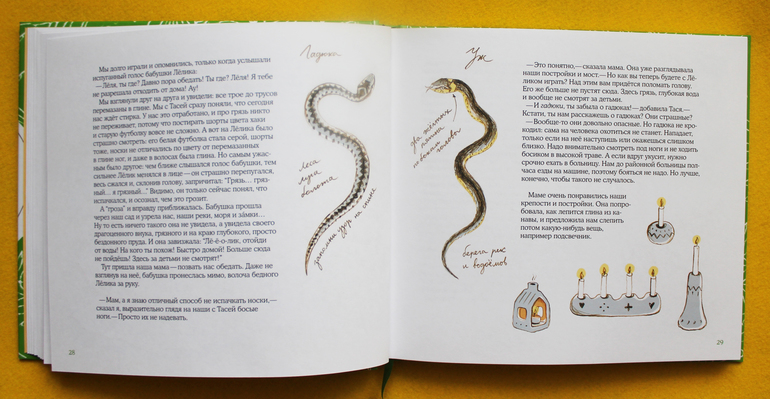 Мы долго играли и опомнились, только когда услышали
испуганный голос бабушки Лёлика:
— Лёля, ты где? Давно пора обедать! Ты где? Лёля! Я тебе
не разрешала отходить от дома! Ау!
Мы взглянули друг на друга и увидели: все трое до трусов
перемазаны в глине. Мы с Тасей сразу поняли, что сегодня
нас ждёт стирка. У нас это отработано, и про грязь никто
не переживает, потому что постирать шорты цвета хаки
и старую футболку вовсе не сложно. А вот на Лёлика было
страшно смотреть: его белая футболка стала серой, шорты
тоже, носки не отличались по цвету от перемазанных
в глине ног, и даже в волосах была глина. Но самым ужас-
ным было другое: чем ближе слышался голос бабушки, тем
сильнее Лёлик менялся в лице — он страшно перепугался,
весь сжался и, склонив голову, запричитал: "Грязь… гряз-
ный… я грязный…" Видимо, он только сейчас понял, что
испачкался, и осознал, чем это грозит.
А "гроза" и вправду приближалась. Бабушка прошла
через наш сад и узрела нас, наши реки, моря и за́мки…
Ну то есть ничего такого она не увидела, а увидела своего
драгоценного внука, грязного и на краю глубокого, просто
бездонного пруда. И она завизжала: "Лё-ё-о-лик, отойди
от воды! На кого ты похож! Быстро домой! Больше сюда
не пойдёшь! Здесь за детьми не смотрят!"
Тут пришла наша мама — позвать нас обедать. Даже не
взглянув на неё, бабушка пронеслась мимо, волоча бедного
Лёлика за руку.
— Мам, а я знаю отличный способ не испачкать носки,—
сказал я, выразительно глядя на наши с Тасей босые
ноги.— Просто их не надевать.
28
Гадюка
леса
луга
болота
зигзаги узор на спине
Уж
два жёлтых
пятна
по бокам
головы
берега рек
и водоёмов
— Это понятно,— сказала мама. Она уже разглядывала
наши постройки и мост.— Но как вы теперь будете с Лё-
ликом играть? Над этим вам придётся поломать голову.
Его же больше не пустят сюда. Здесь грязь, глубокая вода
и вообще не смотрят за детьми.
— И гадюки, ты забыла о гадюках! — добавила Тася.—
Кстати, ты нам расскажешь о гадюках? Они страшные?
— Вообще-то они довольно опасные. Но гадюка не кро-
кодил: сама на человека охотиться не станет. Нападает,
только если на неё наступишь или окажешься слишком
близко. Надо внимательно смотреть под ноги и не ходить
босиком в высокой траве. А если вдруг укусит, нужно
срочно ехать в больницу. Нам до районной больницы полча-
са езды на машине, поэтому бояться не надо. Но лучше,
конечно, чтобы такого не случалось.
Маме очень понравились наши
крепости и постройки. Она попро-
бовала, как лепится глина из ка-
навы, и предложила нам слепить
потом какую-нибудь вещь,
например подсвечник.
29